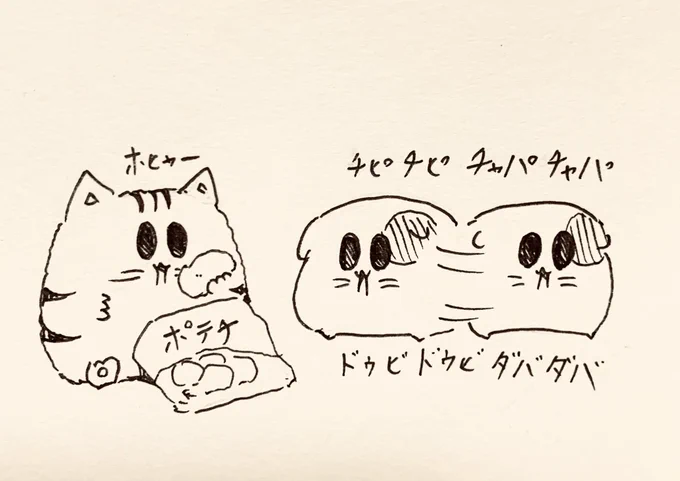 ホヒャー
チピチピ チャパチャパ
ポテチ
ドゥビドゥビ ダバダバ